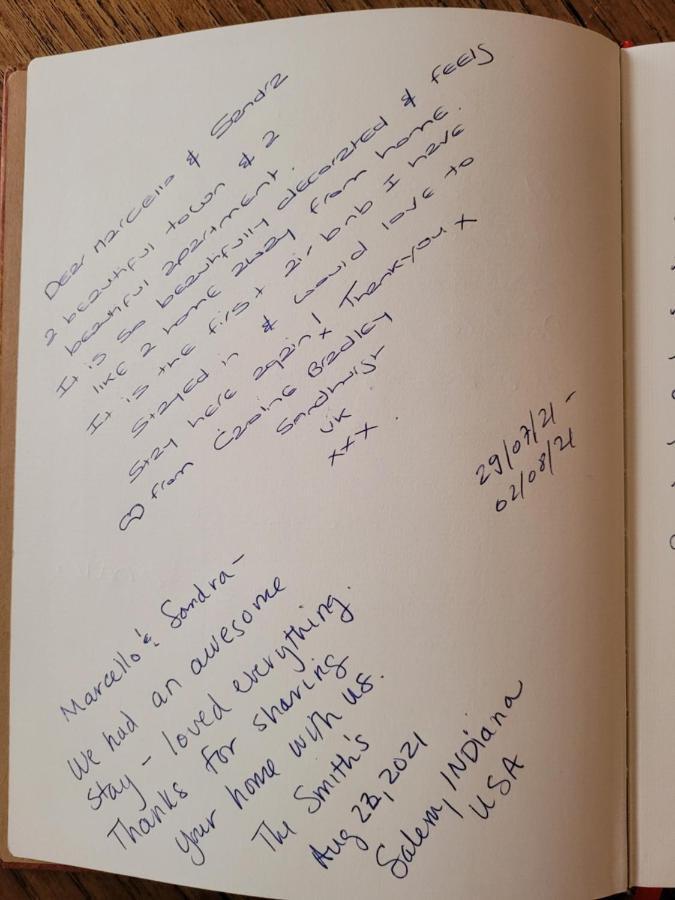 Dear Marcello & Sandra
a beautiful town & a
beautiful apartment.
It is so beautifully decorated & feels
like a home away from home.
It is the first air bnb I have
stayed in & would love to
stay here again! Thankyou x
from Bradley
Sandhurst
UK
xxx
29/07/21 -
02/08/21
Marcello & Sandra -
We had an awesome
stay - loved everything.
Thanks for sharing
your home with us.
The Smith's
Aug 2021
Salem, INDiana
USA